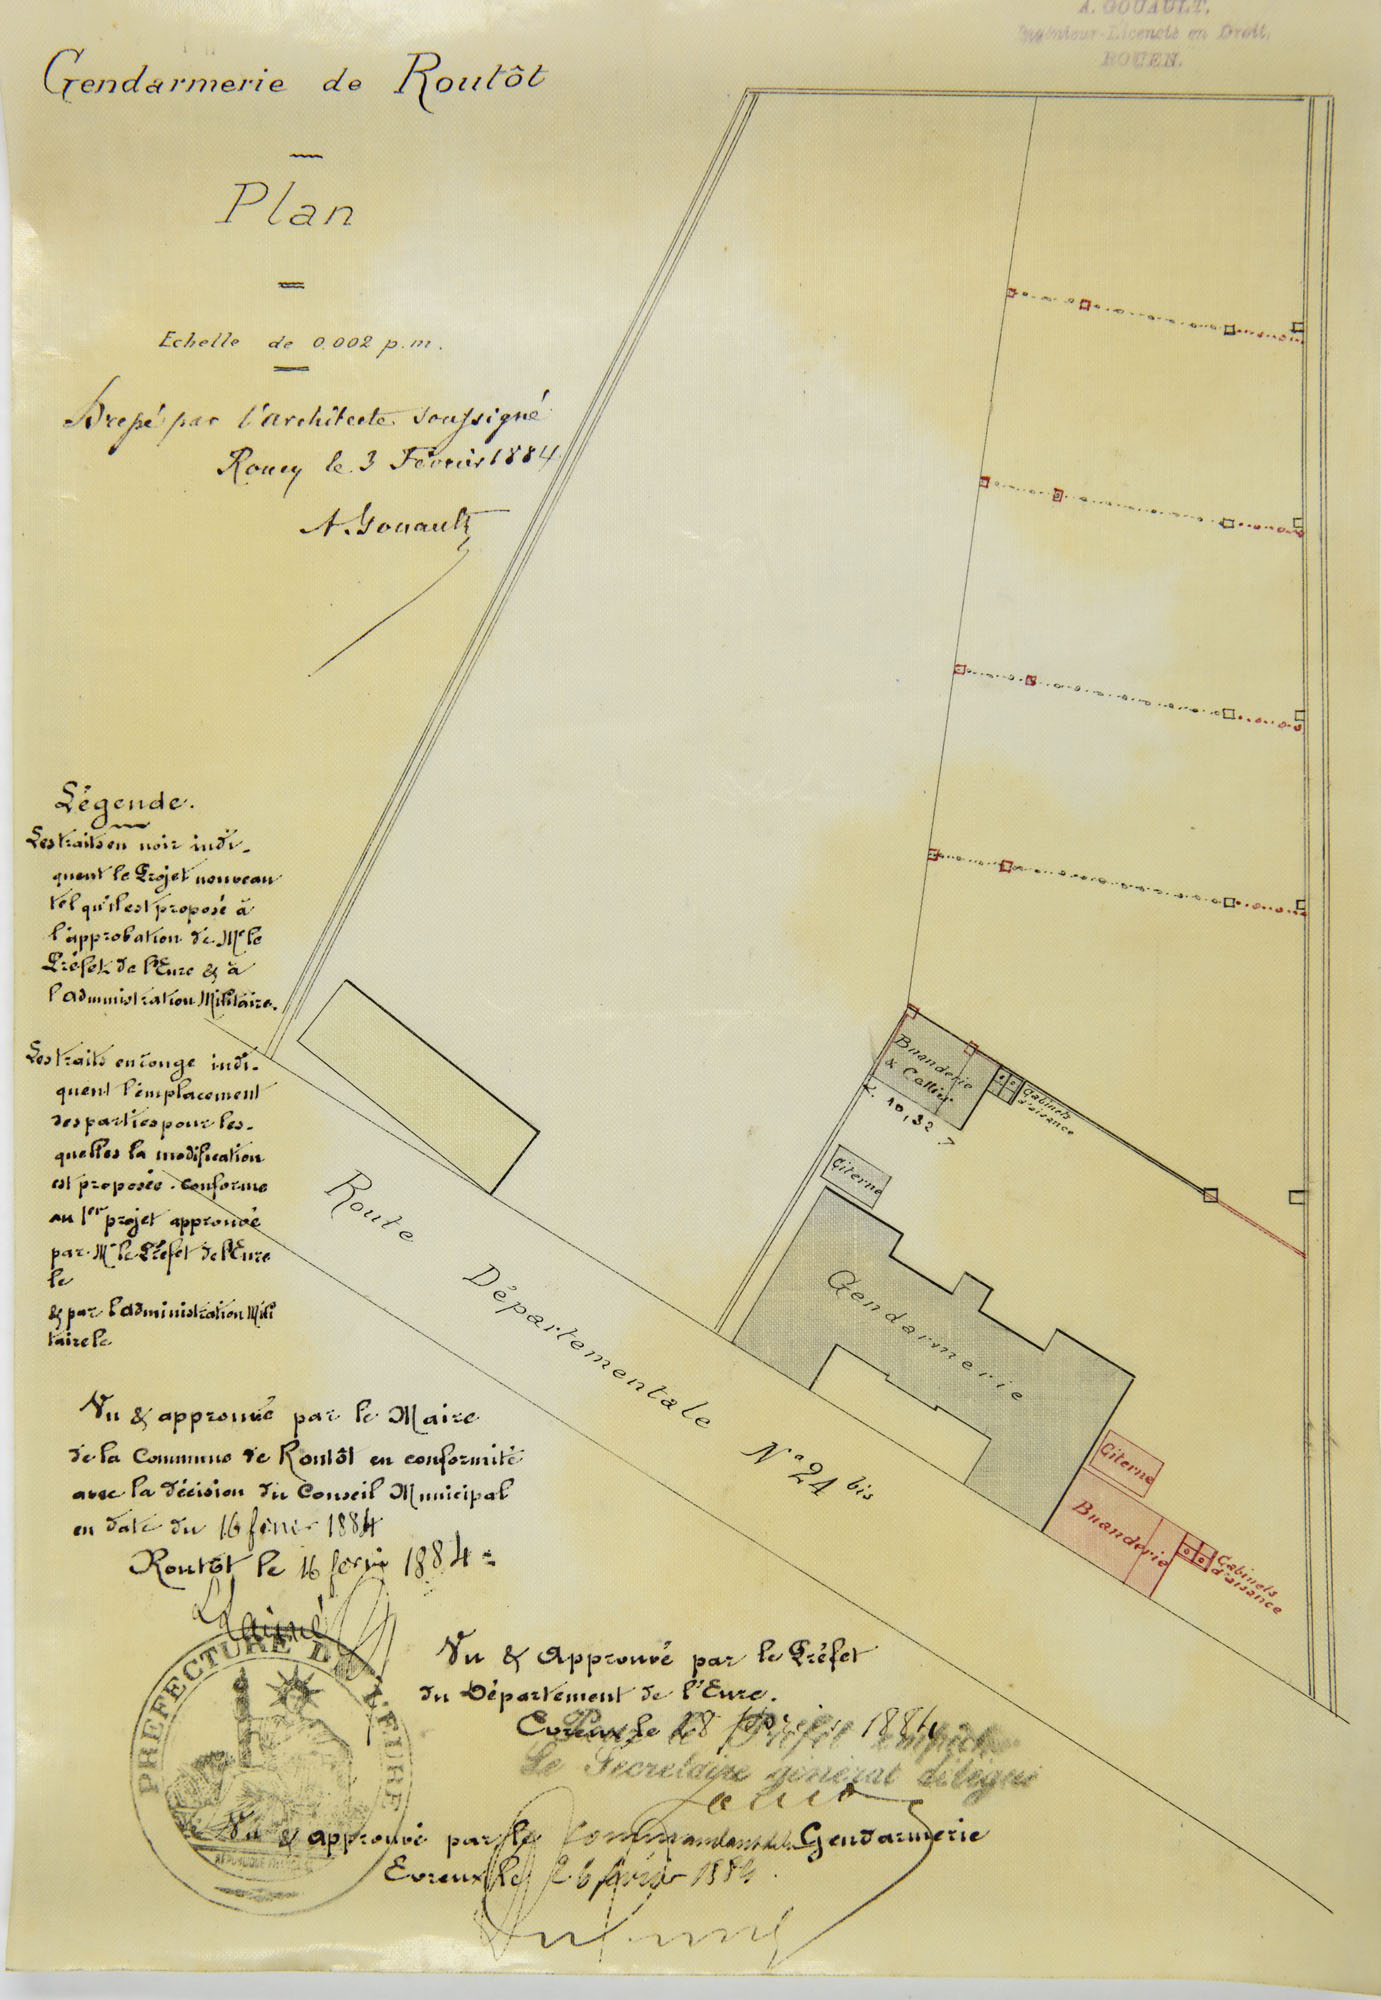 A. GOUAULT,
Ingénieur-Licencié en Droit,
ROUEN.
Gendarmerie de Routôt
Plan
Echelle de 0.002 p.m.
Dressé par l'architecte soussigné
Rouen le 3 Février 1884
A. Gouault
Légende.
Les traits en noir indi-
quent le Projet nouveau
tel qu'il est proposé à
l'approbation de Mr le
Préfet de l'Eure & à
l'Administration Militaire.
Les traits en rouge indi-
quent l'emplacement
des parties pour les-
quelles la modification
est proposée. conforme
au 1er projet approuvé
par Mr le Préfet de l'Eure
le
& par l'administration Mili
taire le
Buanderie
& Cellier
Cabinets
d'aisance
10,32
Citerne
Gendarmerie
Route Départementale No 24 bis
Citerne
Buanderie
Cabinets
d'aisance
Vu & approuvé par le Maire
de la Commune de Routôt en conformité
avec la décision du Conseil Municipal
en date du 16 février 1884
Routôt le 16 février 1884
PREFECTURE DE L'EURE
Vu & Approuvé par le Préfet
du Département de l'Eure.
Evreux le 28 1884
Pour le Préfet empêché
Le Secrétaire général délégué
Vu & approuvé par le Commandant de la Gendarmerie
Evreux le 26 février 1884.